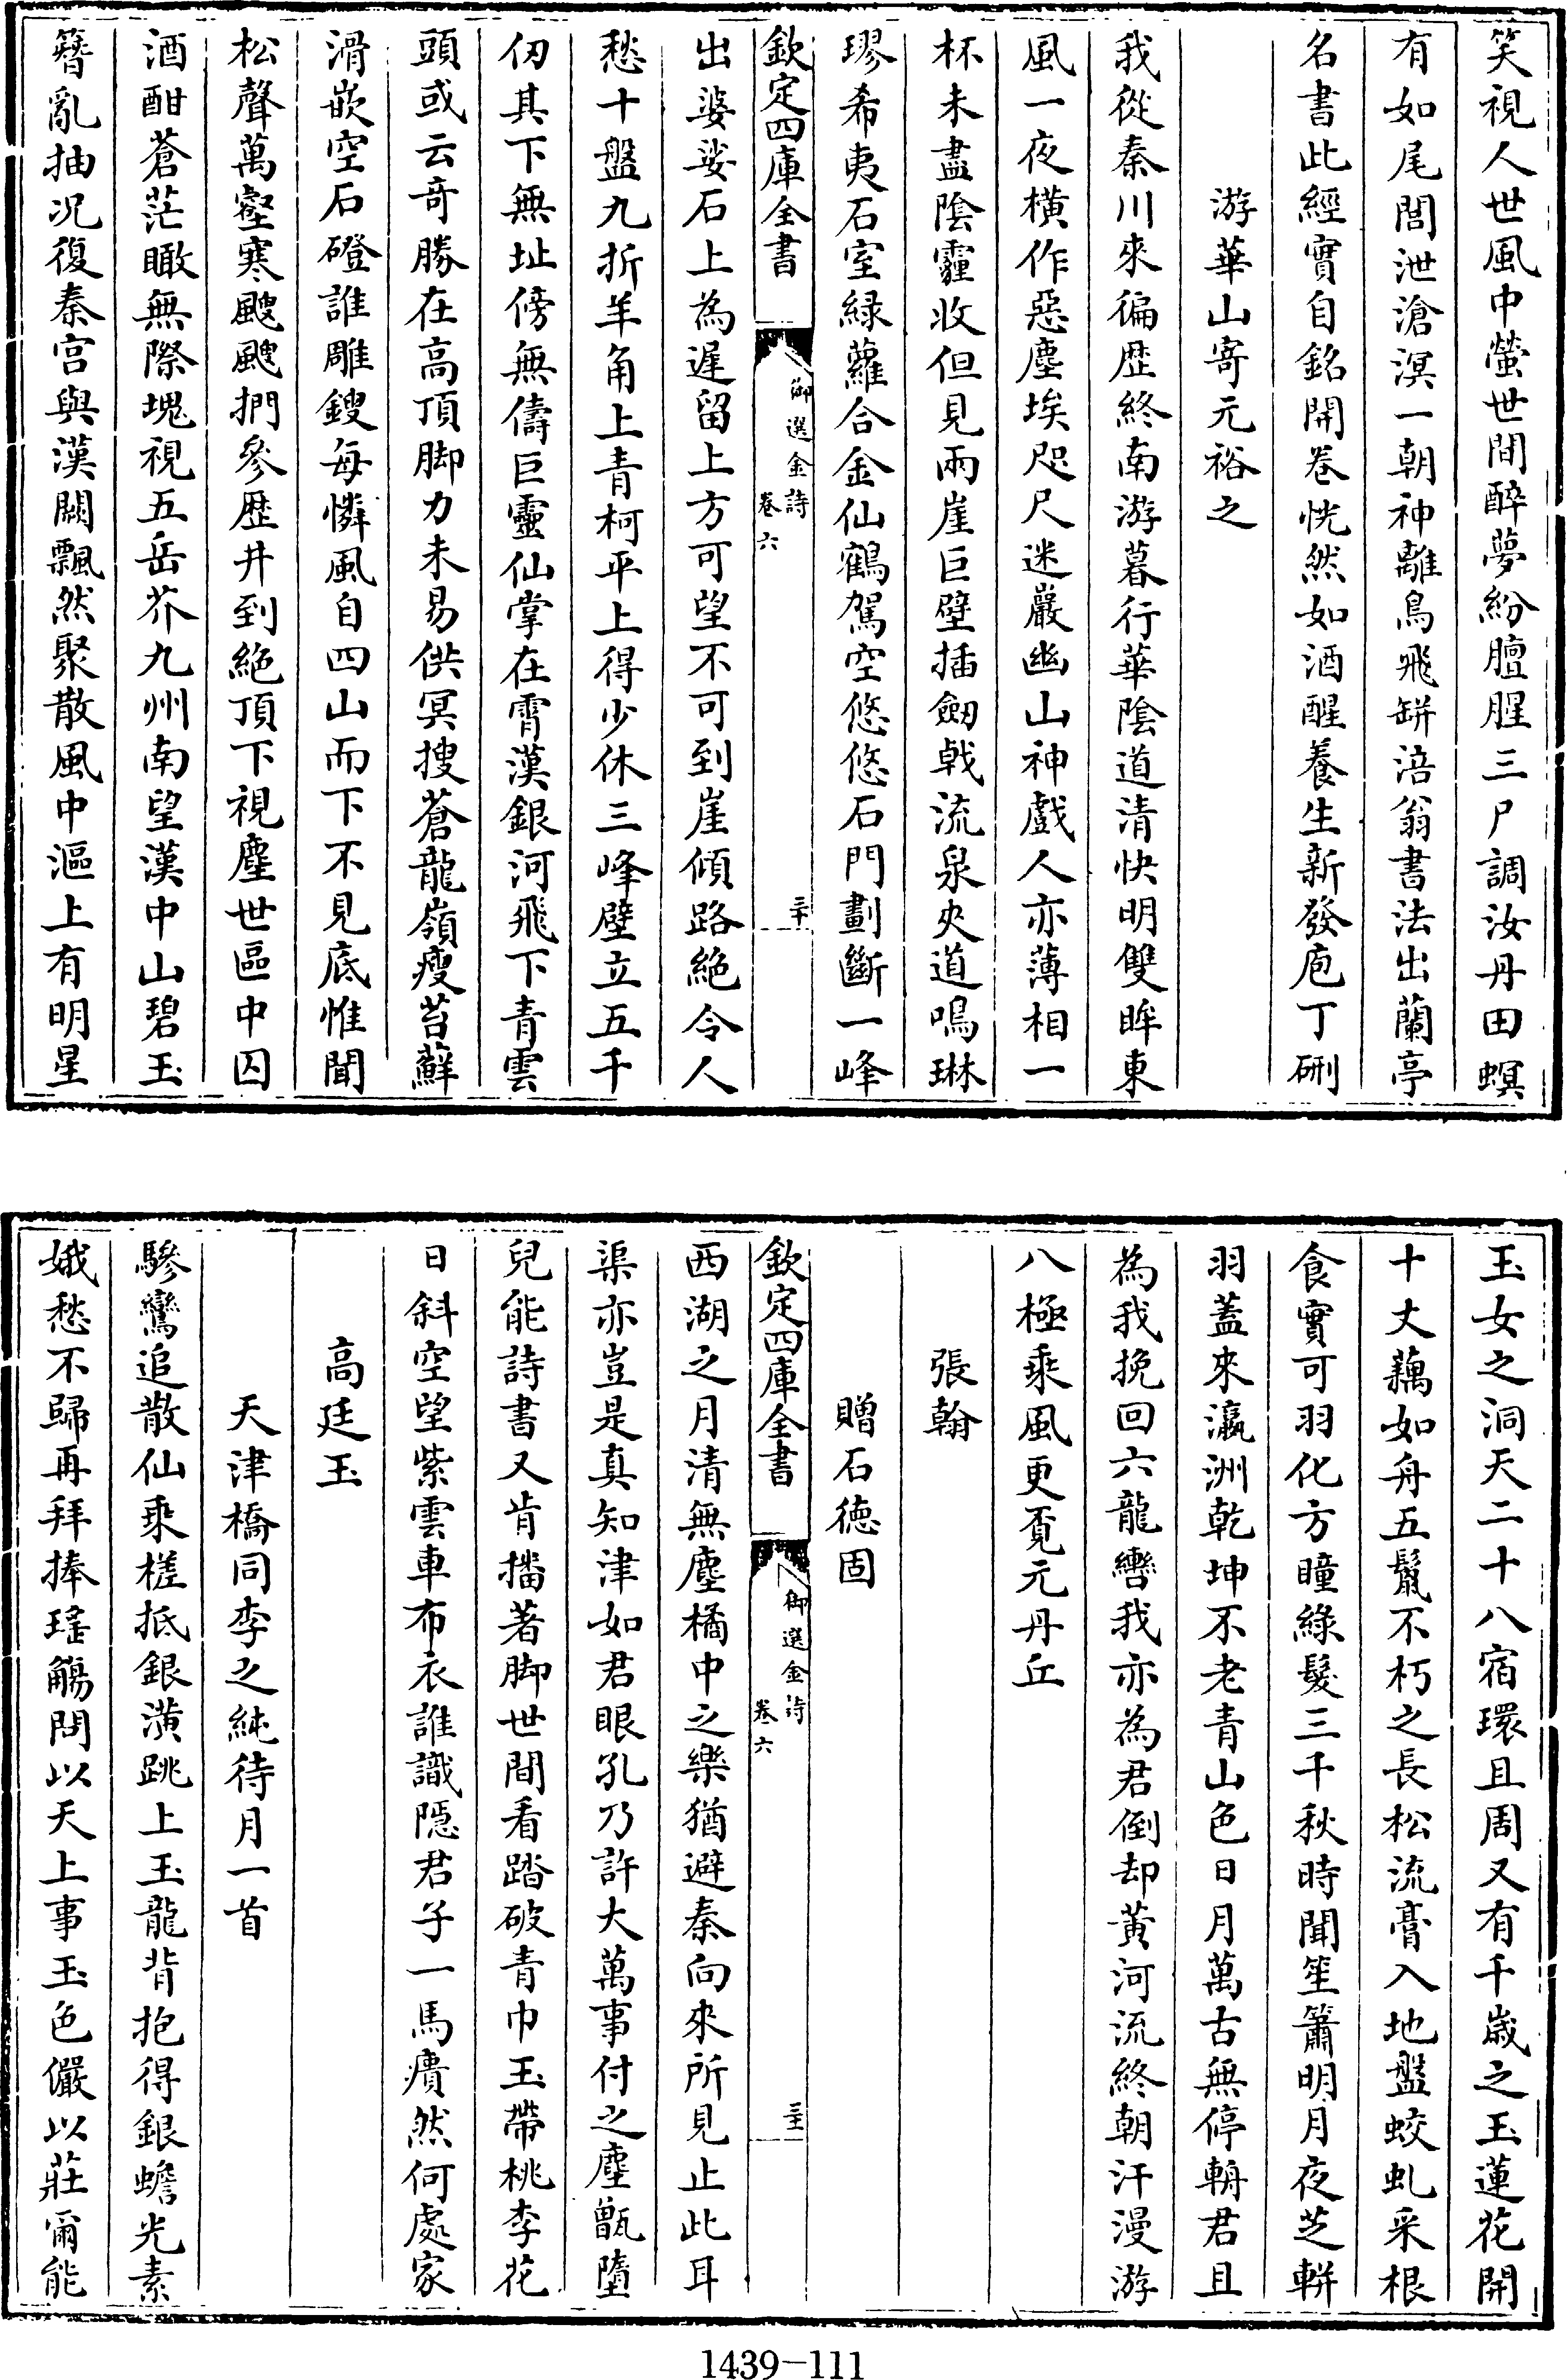 笑視人世風中螢世間醉夢紛膻腥三尸調汝丹田螟
有如尾閭泄滄溟一朝神離鳥飛缾涪翁書法出蘭亭
名書此經實自銘開卷恍然如酒醒養生新發庖丁硎
游華山寄元裕之
我從秦川來徧歴終南游暮行華陰道清快明雙眸東
風一夜橫作惡塵埃咫尺迷巖幽山神戲人亦薄相一
杯未盡陰霾收但見兩崖巨壁插劒戟流泉夾道鳴琳
璆希夷石室緑蘿合金仙鶴駕空悠悠石門劃斷一峰
欽定四庫全書
御選金詩
卷六
三十
出婆娑石上為遲留上方可望不可到崖傾路絶令人
愁十盤九折羊角上青柯平上得少休三峰壁立五千
仞其下無址傍無儔巨靈仙掌在霄漢銀河飛下青雲
頭或云竒勝在高頂脚力未易供冥搜蒼龍嶺瘦苔蘚
滑嵌空石磴誰雕鎪每憐風自四山而下不見底惟聞
松聲萬壑寒颼颼捫參歴井到絶頂下視塵世區中囚
酒酣蒼茫瞰無際塊視五岳芥九州南望漢中山碧玉
簪亂抽况復秦宮與漢闕飄然聚散風中漚上有明星
玉女之洞天二十八宿環且周又有千歲之玉蓮花開
十丈藕如舟五鬣不朽之長松流膏入地盤蛟虬采根
食實可羽化方瞳綠髮三千秋時聞笙簫明月夜芝軿
羽蓋來瀛洲乾坤不老青山色日月萬古無停輈君且
為我挽回六龍轡我亦為君倒却黃河流終朝汗漫游
八極乘風更覓元丹丘
張翰
贈石德固
欽定四庫全書
御選金詩
卷六
三十一
西湖之月清無塵橘中之樂猶避秦向來所見止此耳
渠亦豈是真知津如君眼孔乃許大萬事付之塵甑墮
兒能詩書又肯播著脚世間看踏破青巾玉帶桃李花
日斜空望紫雲車布衣誰識隱君子一馬瘦然何處家
高廷玉
天津橋同李之純待月一首
驂鸞追散仙乘槎抵銀潢跳上玉龍背抱得銀蟾光素
娥愁不歸再拜捧瑤觴問以天上事玉色儼以莊爾能
1439-111